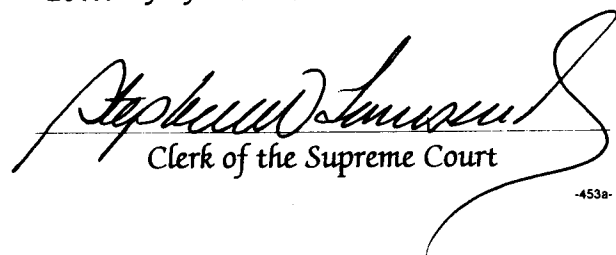 Stephen W Townsend
Clerk of the Supreme Court
-453a-